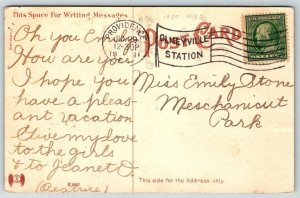 This Space For Writing Messages
POST CARD
PROVIDENCE
12-30P
OLNEYVILLE
STATION
Oh you Em
How are you
I hope you
have a pleas-
ant vacation
Give my love
to the girls
& to Jeanet
(Beatrice)
Miss Emily Stone
Meschanicut
Park
This side for the Address only.